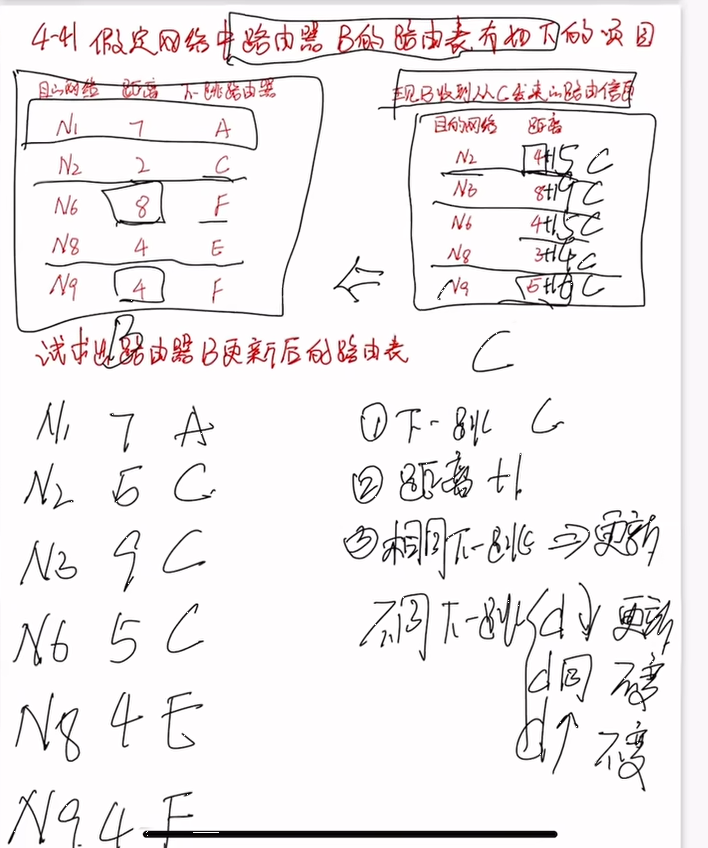 4-41 假定网络中路由器 B的路由表有如下的项目
目的网络 距离 下一跳路由器
N1 7 A
N2 2 C
N6 8 F
N8 4 E
N9 4 F
B
现B收到从C发来的路由信息
目的网络 距离
N2 4+1 5 C
N3 8+1 9 C
N6 4+1 5 C
N8 3+1 4 C
N9 5+1 6 C
C
试求出路由器B更新后的路由表
N1 7 A
N2 5 C
N3 9 C
N6 5 C
N8 4 E
N9 4 F
①下一跳 C
②距离 +1
③相同下一跳 ⇒更新
不同下一跳 { d↓ 更新
d同 不变
d↑ 不变